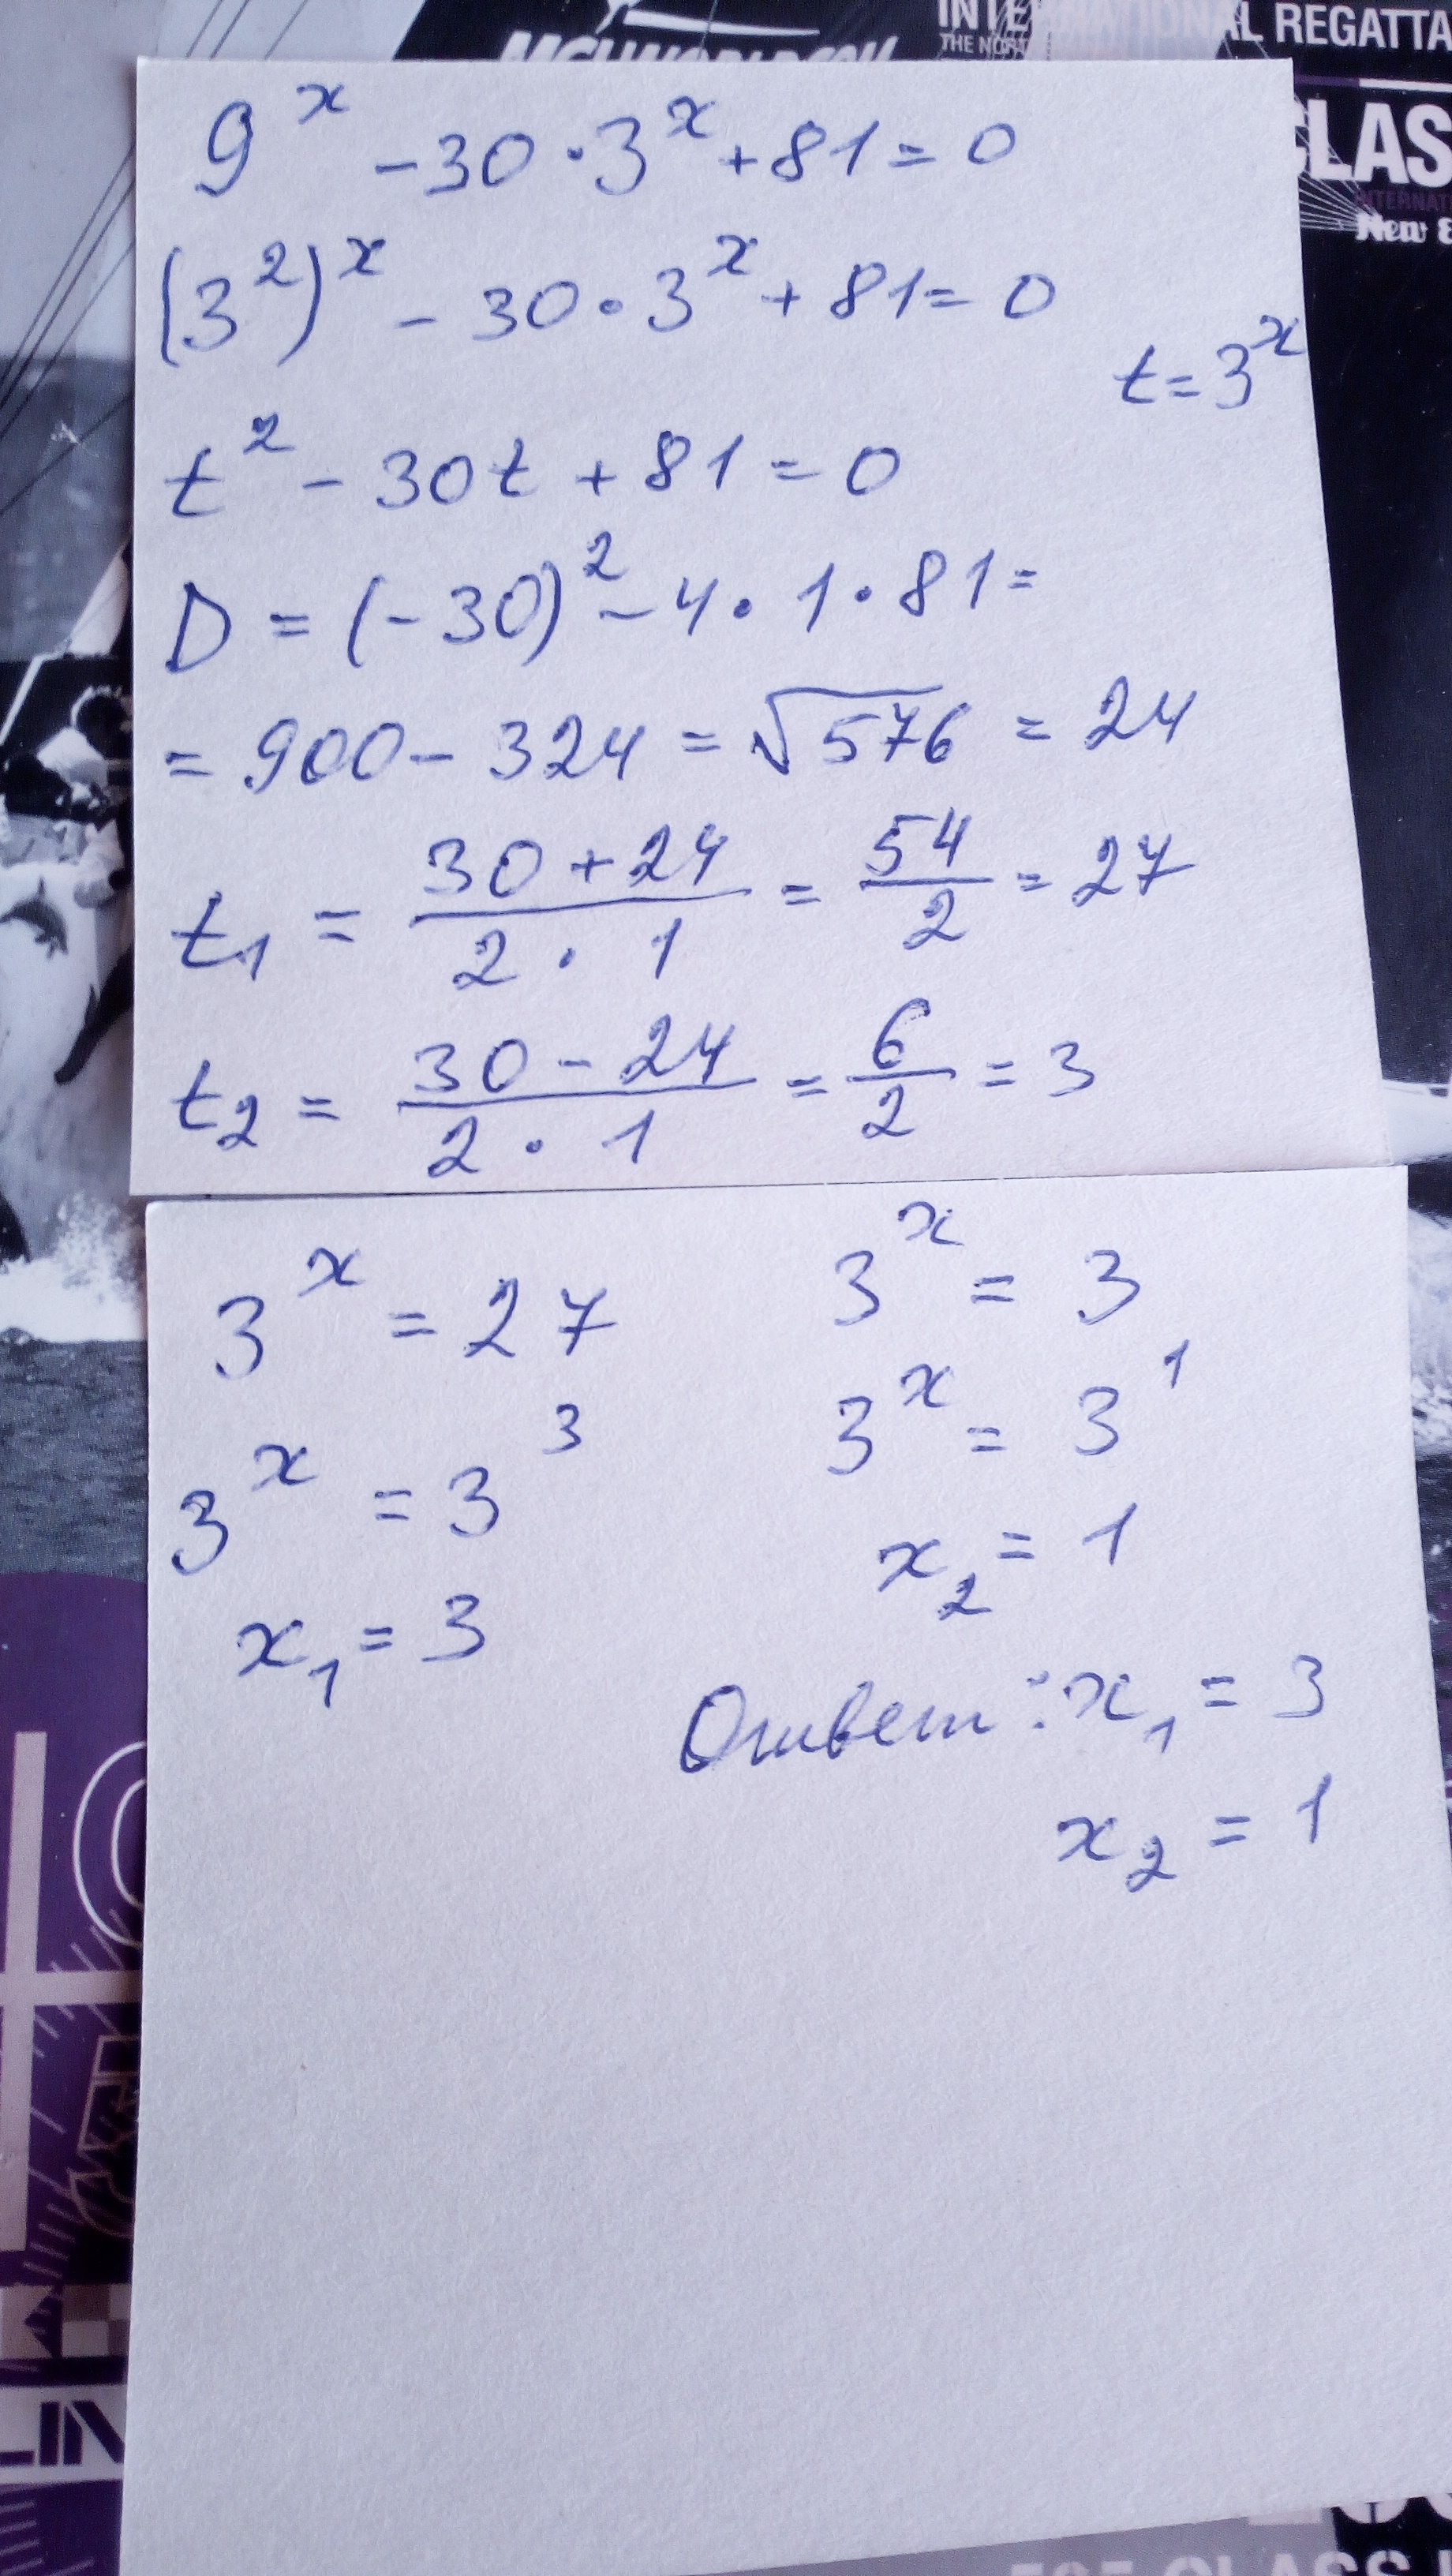 INTERNATIONAL REGATTA
THE NORT
CLAS
INTERNATI
New E
9^x - 30 · 3^x + 81 = 0
(3^2)^x - 30 · 3^x + 81 = 0
t = 3^x
t^2 - 30t + 81 = 0
D = (-30)^2 - 4 · 1 · 81 =
= 900 - 324 = √576 = 24
t_1 = (30 + 24)/(2 · 1) = 54/2 = 27
t_2 = (30 - 24)/(2 · 1) = 6/2 = 3
3^x = 27
3^x = 3^3
x_1 = 3
3^x = 3
3^x = 3^1
x_2 = 1
Ответ: x_1 = 3
x_2 = 1
LIN